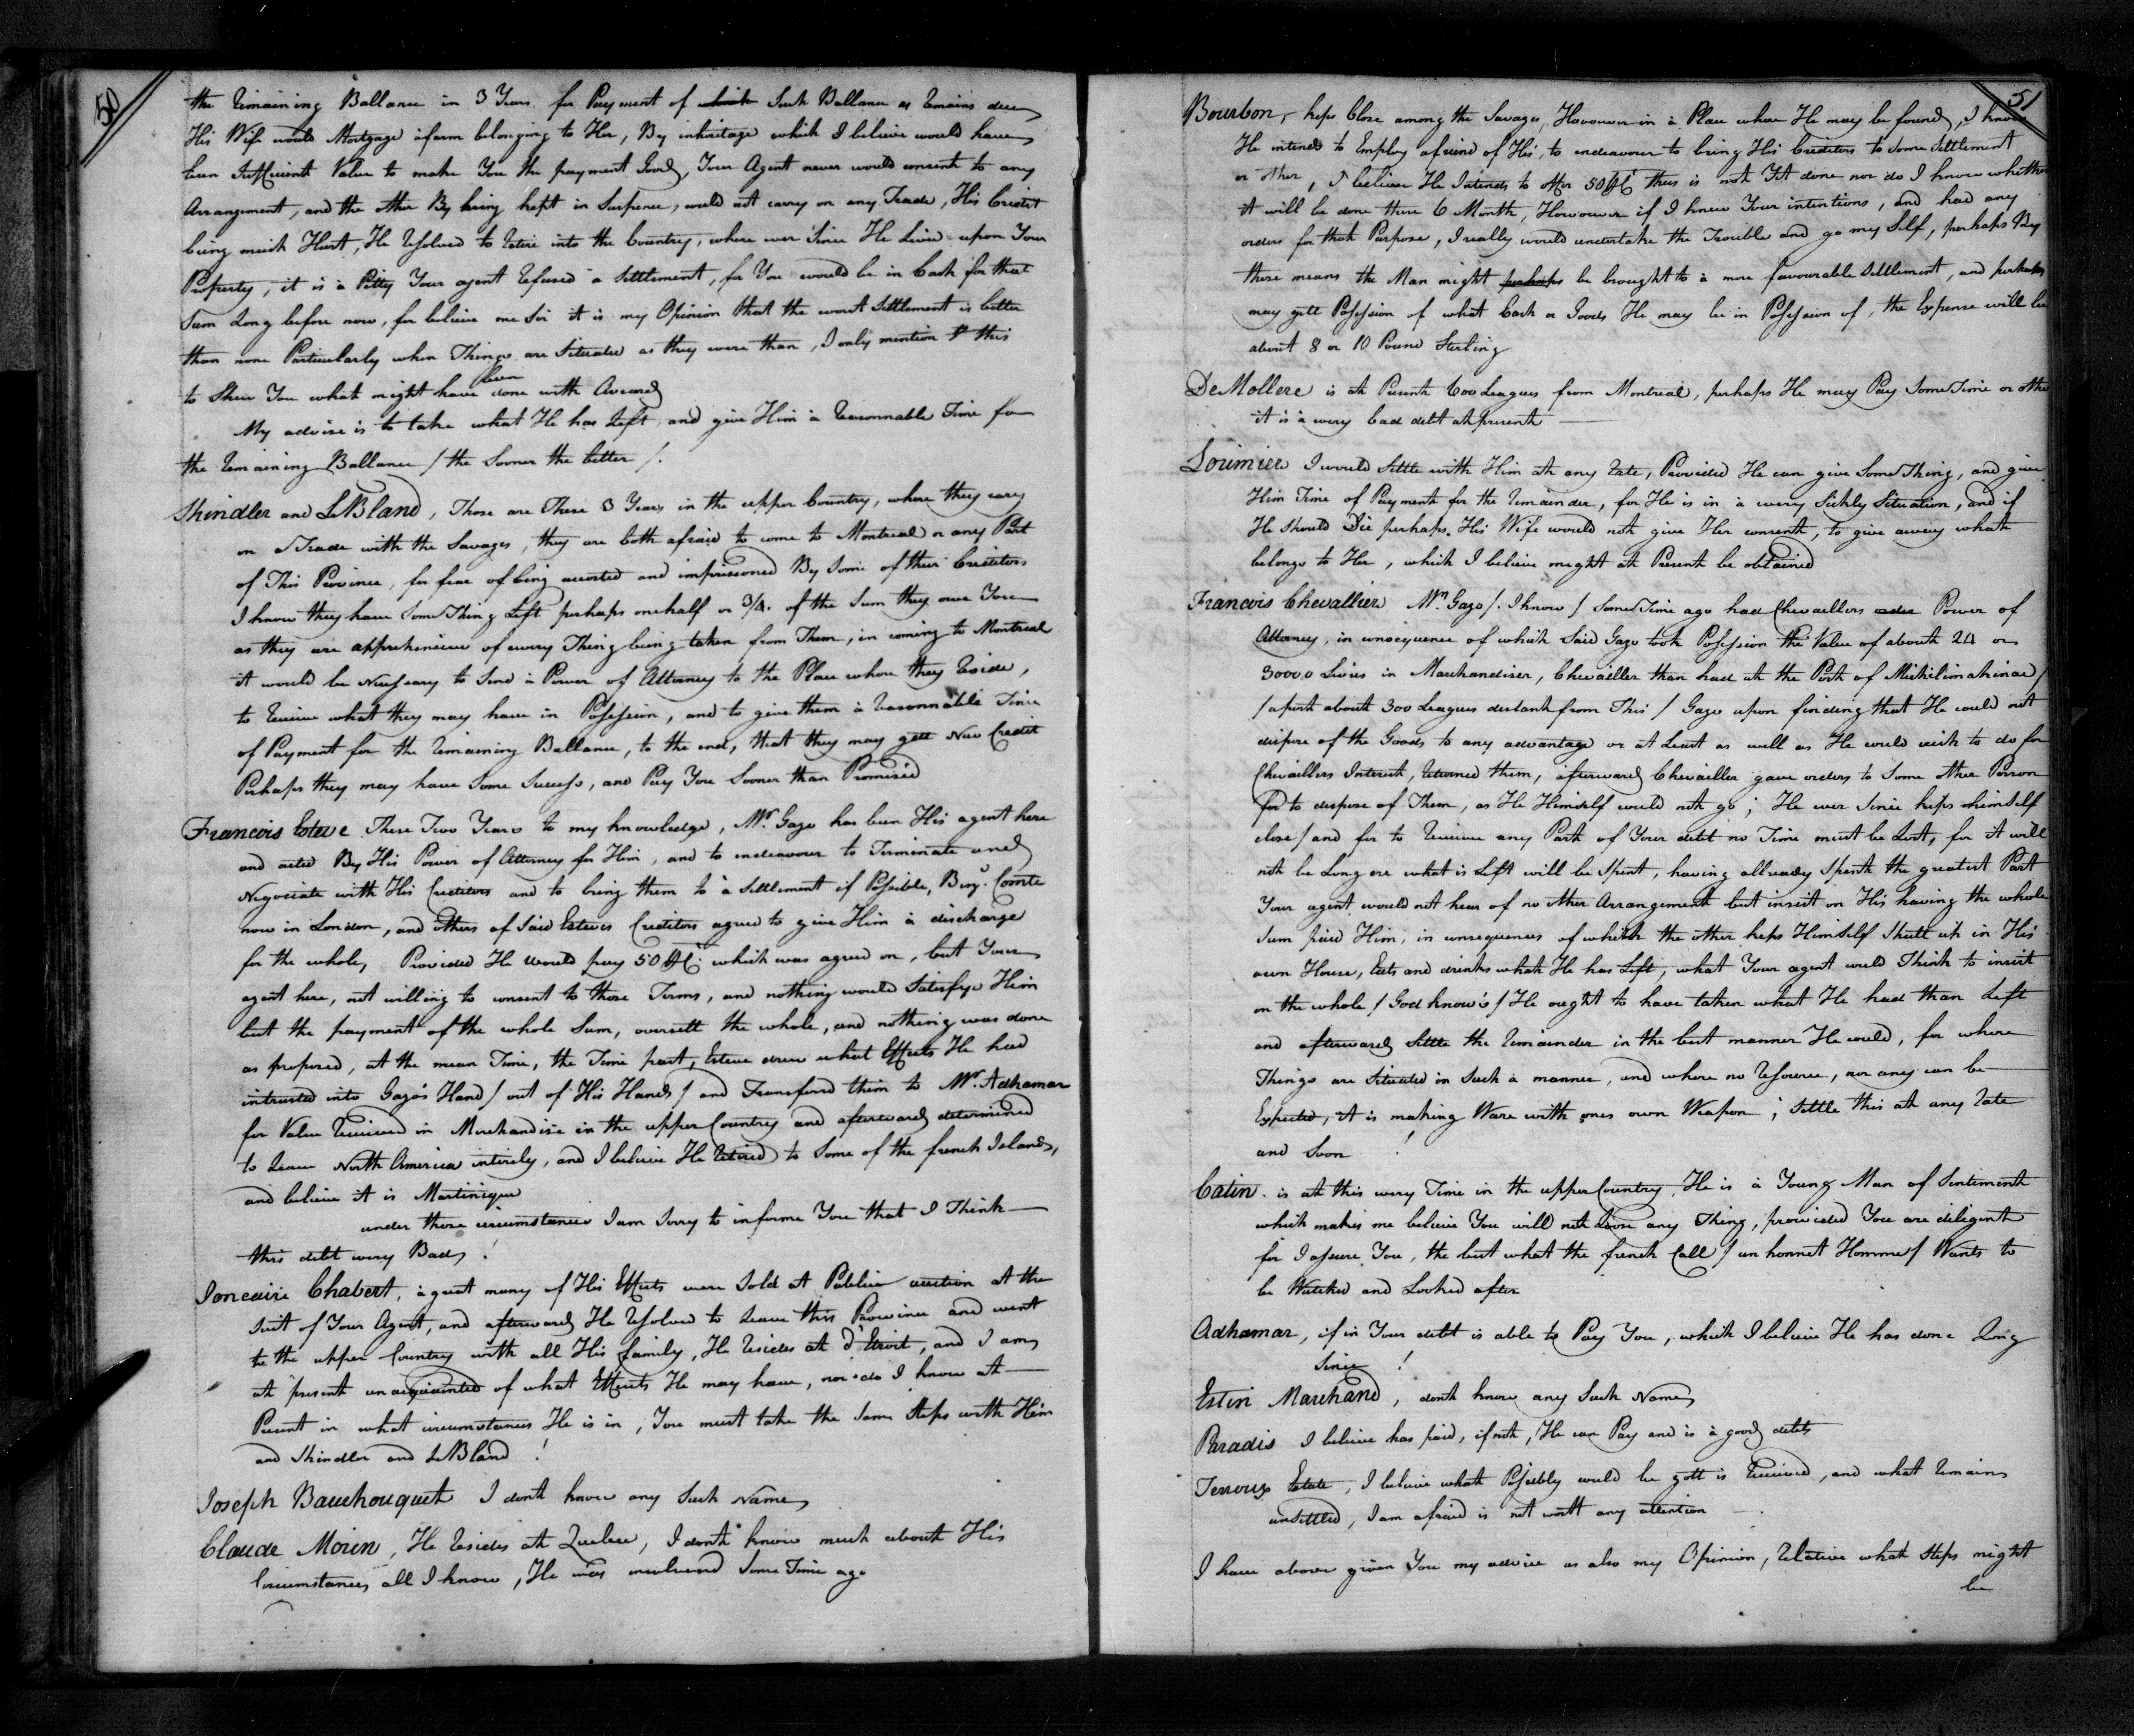 50
the Remaining Ballance in 3 Years for Payment of which Such Ballance as Remains due
His Wife would Mortgage a farm belonging to Her, By inheritage which I believe would have
been Sufficient Value to make You the payment Good, Your Agent never would consent to any
Arrangement, and the other By being kept in Suspence, would not carry on any Trade, His Credit
being much Hurt, He Resolved to Retire into the Country, where ever Since He Lives upon Your
Property, it is à Pitty Your agent Refused a Settlement, for You would be in Cash for that
Sum Long before now, for believe me Sir it is my Opinion that the worst Settlement is better
than none Particularly when Things are Situated as they were than, I only mention this
to Shew You what might have been done with Averard
My advise is to take what He has Left, and give Him à Reasonnable Time for
the Remaining Ballance / the Sooner the better /.
Shindler and LeBland, Those are These 3 Years in the upper Country, where they cary
on à Trade with the Savages, they are both afraid to come to Montreal or any Part
of This Province, for fear of being arrested and imprisoned By Some of their Creditors
I know they have Some Thing Left perhaps one half or 3/4. of the Sum they owe You
as they are apprehensive of every Thing being taken from Them, in coming to Montreal
it would be Nessesary to Send à Power of Attorney to the Place where they Reside,
to Receive what they may have in Possession, and to give them à Reasonnable Time
of Payment for the Remaining Ballance, to the end, that they may gett New Credit
Perhaps they may have Some Success, and Pay You Sooner than Promised
Francois Esteve These Two Years to my knowledge, Mr. Gazo has been His agent here
and acted By His Power of Attorney for Him, and to endeavour to Terminate and
Negociate with His Creditors and to bring them to à Settlement if Possible, Comte
now in London, and others of Said Esteves Creditors agreed to give Him à discharge
for the whole, Provided He would pay 50 which was agreed on, but Your
agent here, not willing to consent to those Terms, and nothing would Satisfye Him
but the payment of the whole Sum, oversett the whole, and nothing was done
as proposed, at the mean Time, the Time past, Esteve drew what Effects He had
intrusted into Gazo's Hand / out of His Hands / and Transferd them to Mr. Adhamar
for Value Received in Merchandise in the upper Country and afterwards determined
to Leave North America intirely, and I believe He Retired to Some of the french Islands,
and believe it is Martinique
under those circumstances I am Sorry to informe You that I Think
this debt very Bad !
Joncaire Chabert, à great many of His Effects were Sold at Public auction at the
Suit of Your Agent, and afterwards He Resolved to Leave this Province and went
to the upper Country with all His family, He Resides at d'Etroit, and I am
at present unacquainted of what Effects He may have, nor do I know at
Present in what circumstances He is in, You must take the Same Steps with Him
and Shindler and LeBland !
Joseph Bauchouquet I dont know any Such Name
Claude Morin, He Resides at Quebec, I dont know much about His
Circumstances, all I know, He was involved Some Time ago
51
Bourbon, keps Close among the Savages, However in à Place where He may be found, I know
He intends to Employ a friend of His, to endeavour to bring His Creditors to Some Settlement
or other, I believe He Intends to offer 50 this is not Yet done nor do I know whether
it will be done these 6 Month, However if I knew Your intentions, and had any
orders for that Purpose, I really would undertake the Trouble and go my Self, perhaps By
these means the Man might perhaps be brought to à more favourable Settlement, and perhaps
may gett Possession of what Cash or Goods He may be in Possession of, the Expense will be
about 8 or 10 Pound Sterling
DeMollere is at Present 600 Leagues from Montreal, perhaps He may Pay Some Time or other
it is à very bad debt at present
Lorimier I would Settle with Him at any Rate, Provided He can give Some Thing, and give
Him Time of Payment for the Remainder, for He is in à very Sickly Situation, and if
He Should Die perhaps His Wife would not give Her consent, to give away what
belongs to Her, which I believe might at Present be obtained
Francois Chevallier Mr. Gazo /. I know / Some Time ago had Chevaillers Power of
Attorney, in consequence of which Said Gazo took Possession the Value of about 24 or
30000 Livres in Marchandises, Chevailler than had at the Post of Michilimakinac /
/ a post about 300 Leagues distant from This / Gazo upon finding that He could not
dispose of the Goods to any advantage or at Least as well as He could wish to do for
Chevaillers Interest, Returned them, afterwards Chevailler gave orders to Some other Person
for to dispose of Them, as He Himself would not go ; He ever Since keps himself
close / and for to Receive any Part of Your debt no Time must be Lost, for it will
not be Long ere what is Left will be Spent, having allready Spent the greatest Part
Your agent would not hear of no other Arrangement but insist on His having the whole
Sum paid Him, in consequences of which the other keps Himself Shutt up in His
own House, Eats and drinks what He has Left, what Your agent could Think to insist
on the whole / God know's / He ought to have taken what He had than Left
and afterwards Settle the Remainder in the best manner He could, for where
Things are Situated in Such à manner, and where no Resource, nor any can be
Expected, it is making Ware with ones own Weapon ; Settle this at any Rate
and Soon !
Catin. is at this very Time in the upper Country, He is à Young Man of Sentiment
which makes me believe You will not Loose any Thing, provided You are diligent
for I assure You, the best what the french Call / un honnet Homme / Wants to
be Watched and Looked after
Adhamar, if in Your debt is able to Pay You, which I believe He has done Long
Since !
Estin Marchand, dont know any Such Name
Paradis I believe has paid, if not, He can Pay and is à good debt
Terroux Estate, I believe what Possibly could be gott is Received, and what Remains
unsettled, I am afraid is not worth any attention
I have above given You my advice as also my Opinion, Relative what Steps might
be